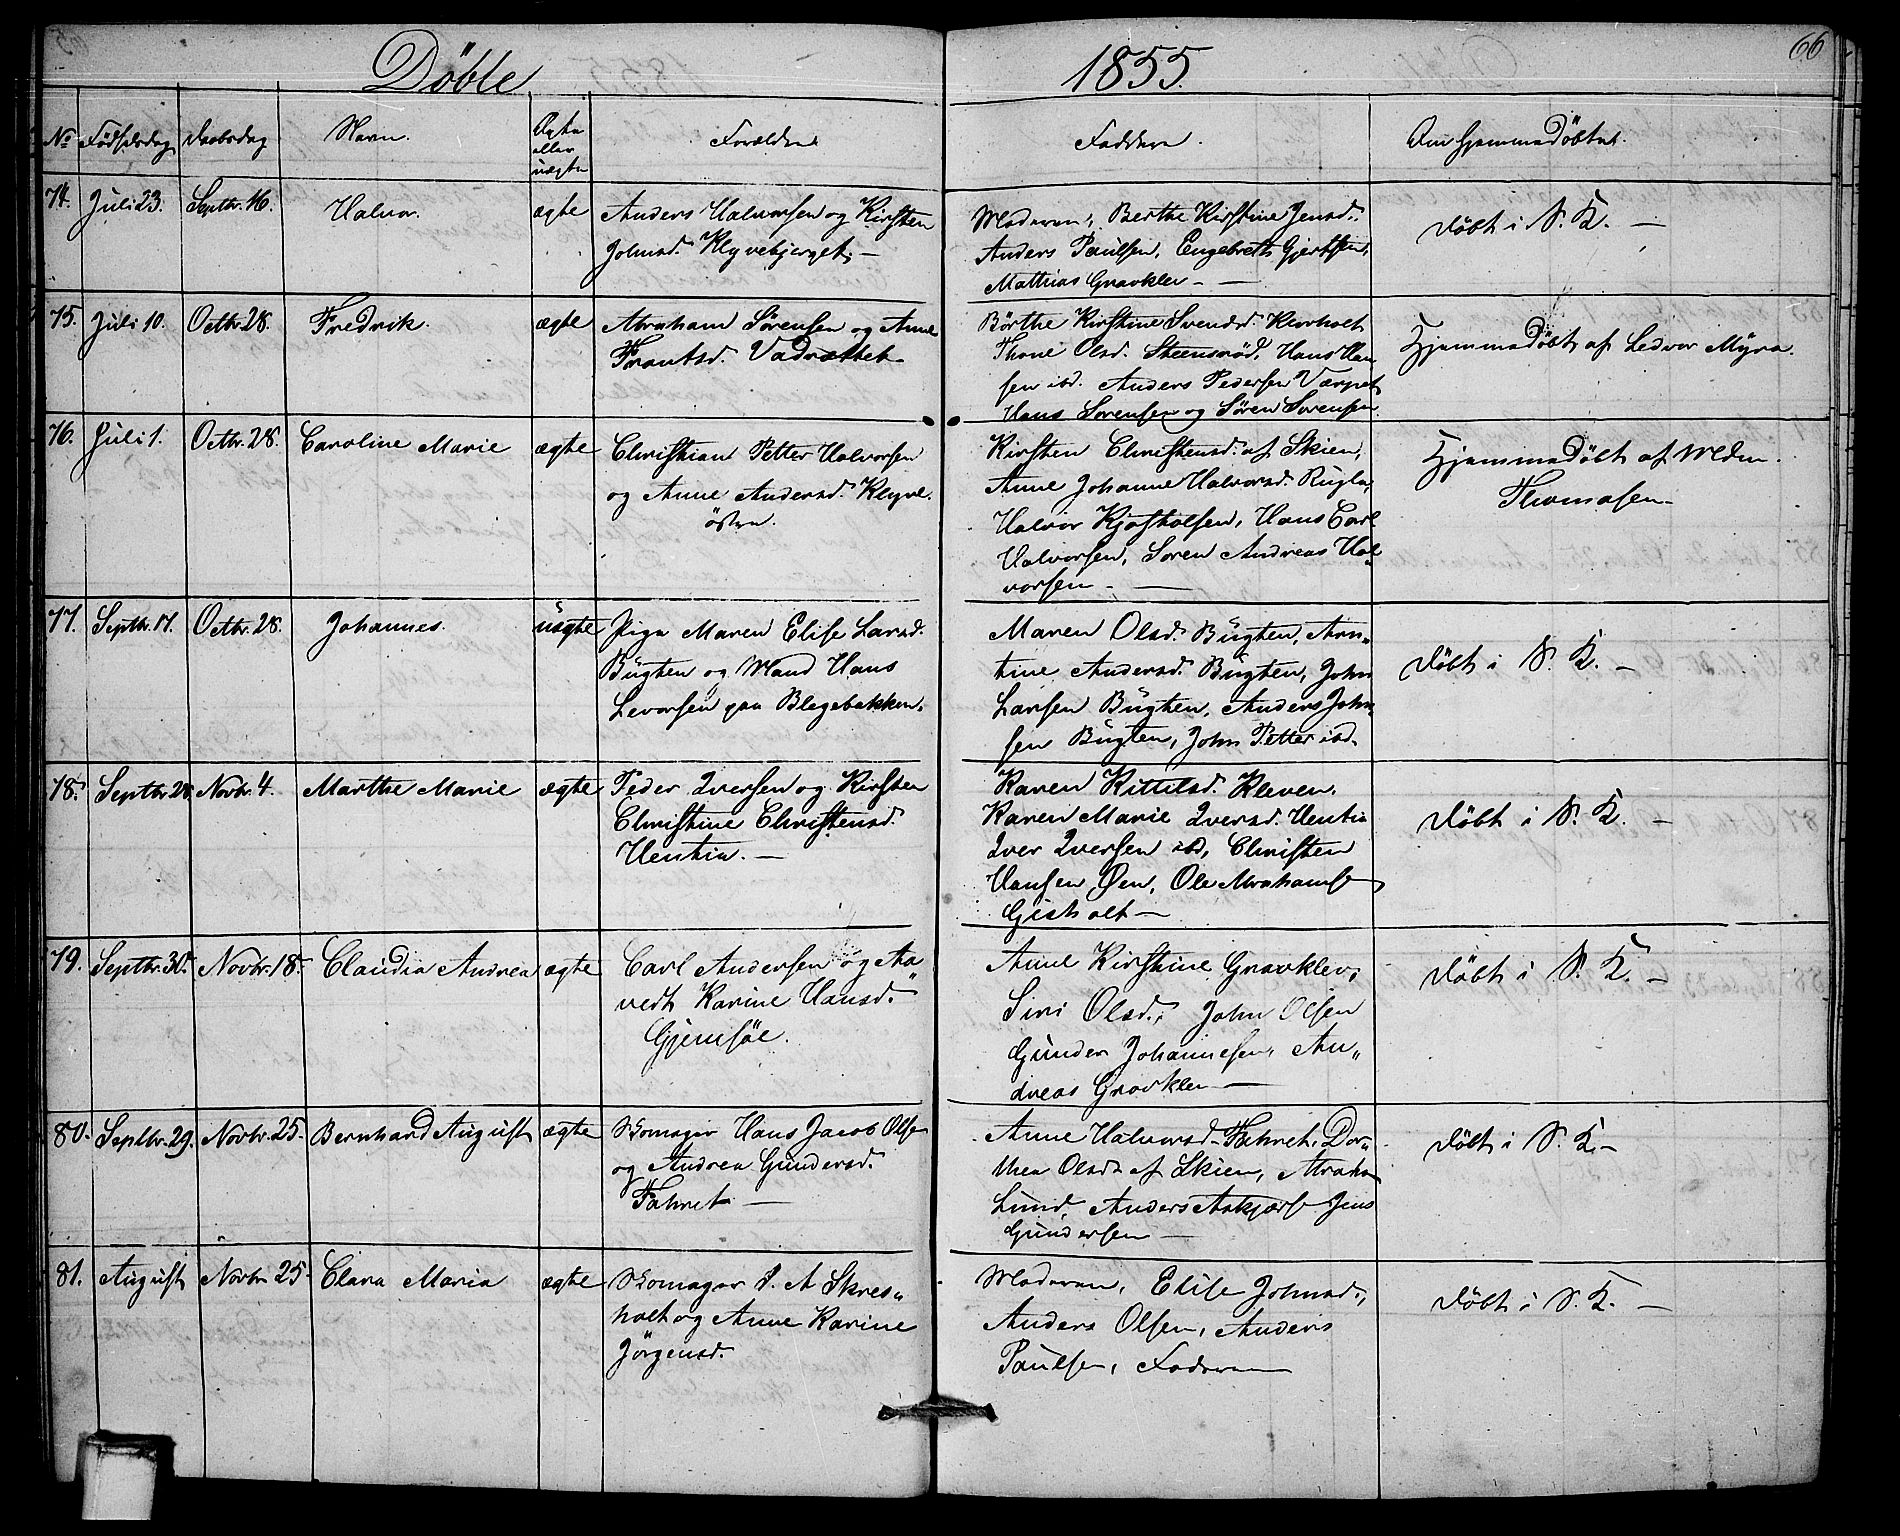 Döbte
1855.
66
No
Födselsdag
Daabsdag
Navn.
Ægte eller uægte
Forældre
Faddere.
Om Hjemmedöbt.
74.
Juli 23.
Septbr. 16.
Halvor.
ægte
Anders Halvorsen og Kirsten
Johnsd. Klyvebjerget. —
Moderen, Berthe Kirstine Jensd.
Anders Paulsen, Engebreth Gjertsen,
Mathias Gravklev. —
Döbt i S. K. —
75.
Juli 10.
Octbr. 28.
Fredrik.
ægte
Abraham Sörensen og Anne
Frantsd. Vadrættet
Börthe Kirstine Svendsd. Klovholt
Thone Olsd. Steensröd, Hans Han
sen ibd. Anders Pedersen Værpet
Hans Sorensen og Sören Sorensen
Hjemmedöbt af Ledvor Myra.
76.
Juli 1.
Octbr. 28.
Caroline Marie
ægte
Christian Petter Halvorsen
og Anne Andersd. Klyve.
östre.
Kirsten Christensd. af Skien,
Anne Johanne Halvorsd. Rugla,
Halvor Kjostolsen, Hans Carl
Halvorsen, Soren Andreas Hal
vorsen —
Hjemmedöbt af
Thomasen —
77.
Septbr. 17.
Octbr. 28.
Johannes.
uægte
Pige Maren Elise Larsd.
Bügten og Mand Hans
Levorsen paa Blegebakken.
Maren Olsd. Bügten, Arn„
tine Andersd. Bügten, John
Larsen Bügten, Anders John
sen Bügten, John Petter ibd.
Döbt i S. K. —
78.
Septbr. 28
Novbr. 4.
Marthe Marie
ægte
Peder Iversen og Kirsten
Christine Christensd.
Ventia. —
Karen Kittilsd. Kleven.
Karen Marie Iversd. Ventia
Iver Iversen ibd, Christen
Hansen Øen, Ole Abrahams
Gisholt —
Döbt i S. K. —
79.
Septbr. 30.
Novbr. 18.
Claudia Andrea
ægte
Carl Andersen og Aa„
vedt Karine Hansd.
Gjemsöe.
Anne Kirstine Gravklev,
Siri Olsd., John Olsen
Gunder Johannesen, An„
dreas Gravklev —
Döbt i S. K. —
80.
Septbr. 29.
Novbr. 25.
Bernhard August
ægte
Skomager Hans Jacob Olse
og Andrea Gundersd.
Fahret —
Anne Halvorsd. Fahret, Dor„
thea Olsd. af Skien, Abraha
Lund, Anders Askjærs Jens
Gundersen —
Döbt i S. K. —
81.
August
Novbr. 25.
Clara Maria
ægte
Skomager P. A Skres„
holt og Anne Karine
Jörgensd.
Moderen, Elise Johnsd.,
Anders Olsen, Anders
Paulsen, Faderen
Döbt i S. K. —